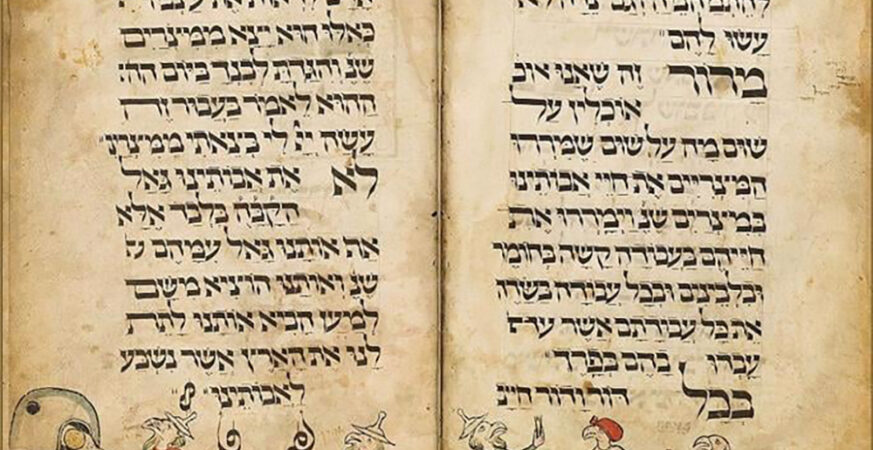 להתמהמה וגם צידה לא
עשו להם
מרור זה שאנו אוכ
אוכלין על
שום מה על שום שמררו
המצריים את חיי אבותינו
במצרים שנ' וימררו את
חייהם בעבודה קשה בחומר
ובלבינים ובכל עבודה בשדה
את כל עבודתם אשר
עבדו בהם בפרך
בכל דור ודור חייב
את
כאלו הוא יצא ממצרים
שנ' והגדת לבנך ביום הה'
ההוא לאמר בעבור זה
עשה יי' לי בצאתי ממצרים
לא את אבותינו גאל
הקב״ה בלבד אלא
את אותנו גאל עמהם
שנ' ואותנו הוציא משם
למען הביא אותנו לתת
לנו את הארץ אשר נשבע
לאבותינו